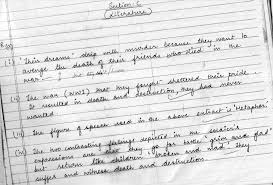 Section C
(Literature)
(i) 'Their dreams' drip with murder because they want to
avenge the death of their friends who died in the
war.
(ii) The war (WW1) that they fought shattered their pride.
It resulted in death and destruction, they had never
wanted
(iii) The figure of speech used in the above extract is 'Metaphor'
(iv) The two contrasting feelings depicted in the soldier's
expressions are that they go for battle 'grim and glad'
but return like children, 'broken and mad', they
suffer and witness death and destruction